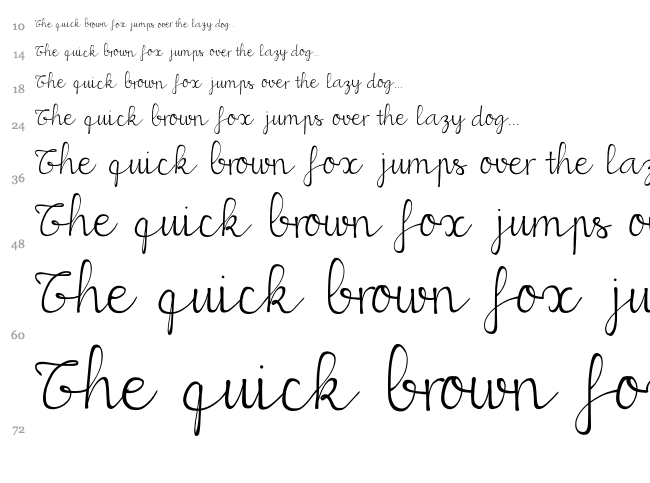 10 The quick brown fox jumps over the lazy dog...
14 The quick brown fox jumps over the lazy dog...
18 The quick brown fox jumps over the lazy dog...
24 The quick brown fox jumps over the lazy dog...
36 The quick brown fox jumps over the laz
48 The quick brown fox jumps o
60 The quick brown fox ju
72 The quick brown fo